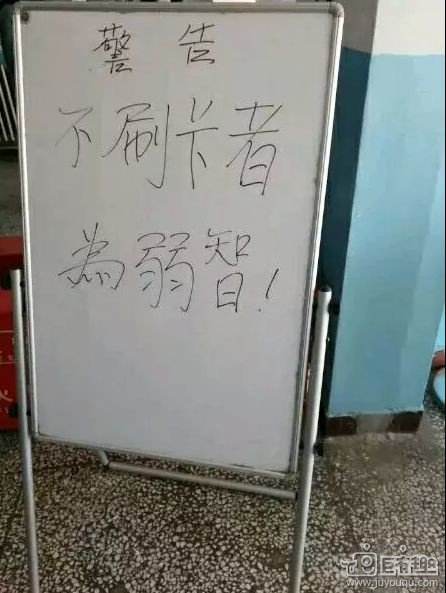 警告
不刷卡者
為弱智!
www.juyouqu.com